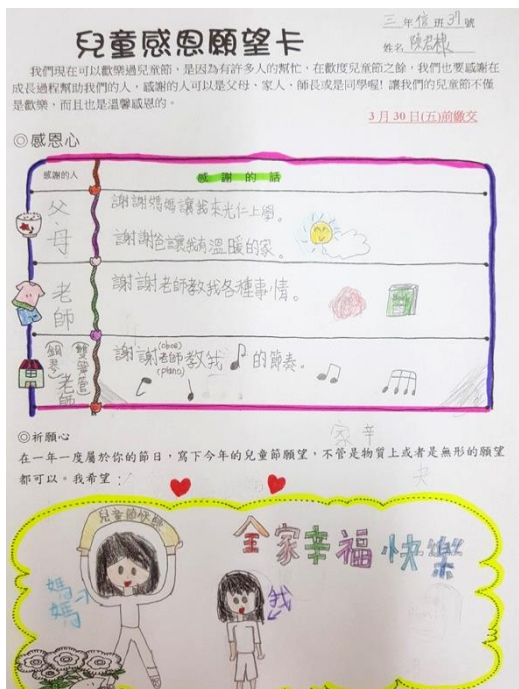 三年信班37號
兒童感恩願望卡
姓名 陳君棣
我們現在可以歡樂過兒童節，是因為有許多人的幫忙，在歡度兒童節之餘，我們也要感謝在
成長過程幫助我們的人，感謝的人可以是父母、家人、師長或是同學喔！讓我們的兒童節不僅
是歡樂，而且也是溫馨感恩的。
3月30日(五)前繳交
◎感恩心
感謝的人
感謝的話
父母
謝謝媽媽讓我來光仁上學。
謝謝爸讓我有溫暖的家。
老師
謝謝老師教我各種事情。
(鋼琴)(雙簧管)老師
(oboe)
謝謝老師教我 的節奏。
(piano)
家 幸
◎祈願心
在一年一度屬於你的節日，寫下今年的兒童節願望，不管是物質上或者是無形的願望
都可以。我希望：
兒童節快樂
全家幸福快樂
媽媽
我